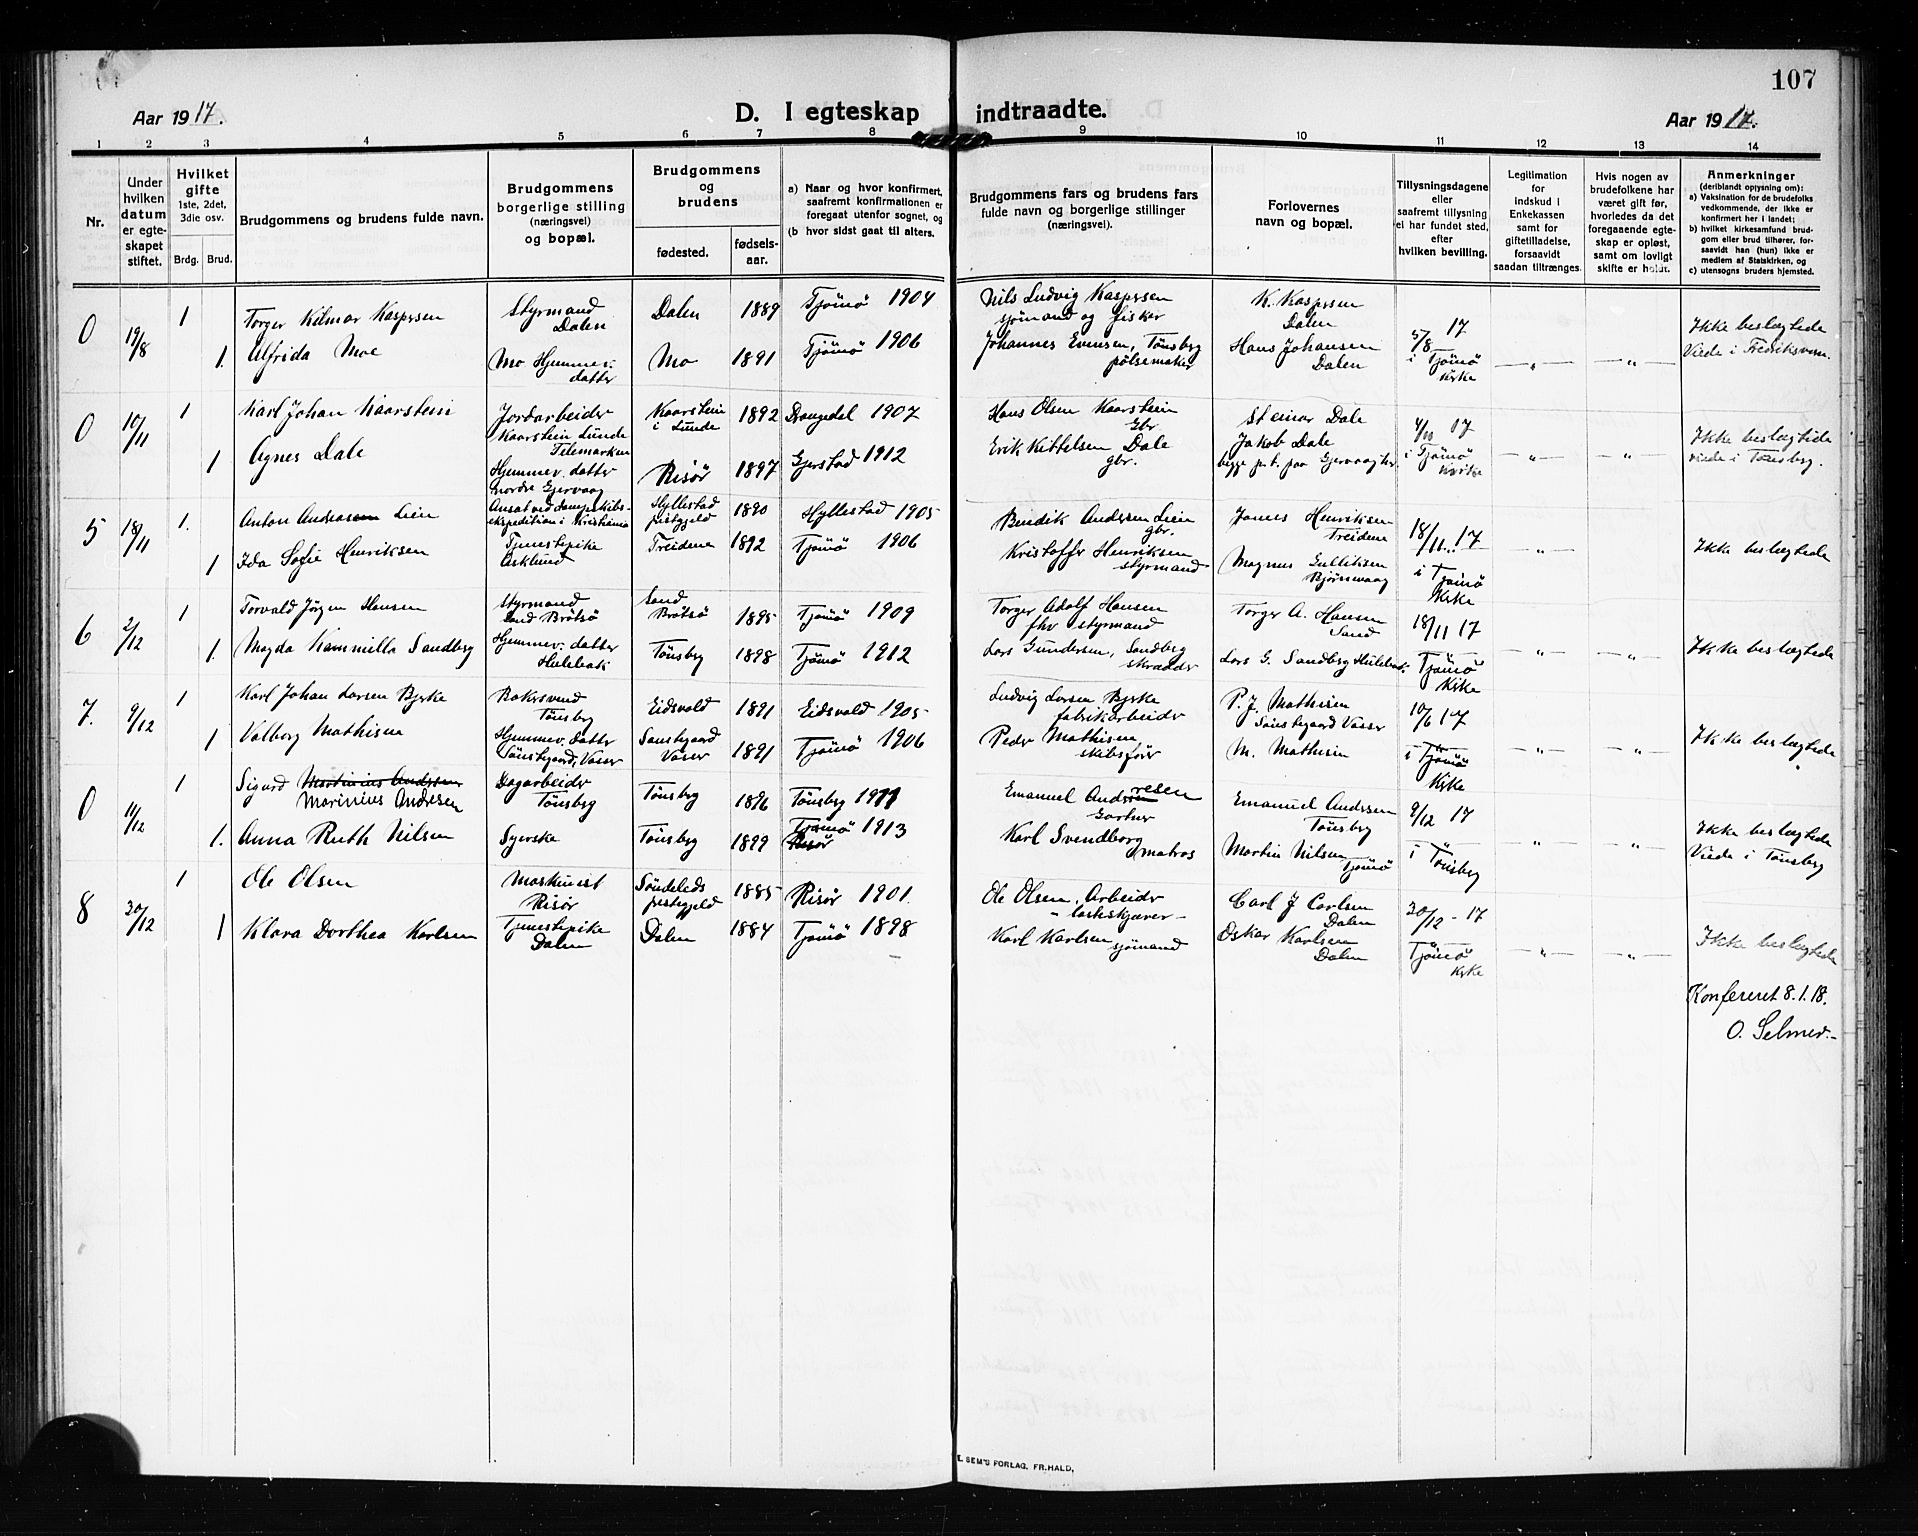 107
Aar 1917.
D. I egteskap indtraadte.
Aar 1917.
1 2 3 4 5 6 7 8 9 10 11 12 13 14
Nr.
Under hvilken datum er egteskapet stiftet.
Hvilket gifte 1ste, 2det, 3die osv.
Brdg. Brud.
Brudgommens og brudens fulde navn.
Brudgommens borgerlige stilling (næringsvei) og bopæl.
Brudgommens og brudens
fødested. fødsels-aar.
a) Naar og hvor konfirmert, saafremt konfirmationen er foregaat utenfor sognet, og
(b hvor sidst gaat til alters.
Brudgommens fars og brudens fars fulde navn og borgerlige stillinger (næringsvei).
Forlovernes navn og bopæl.
Tillysningsdagene eller saafremt tillysning ei har fundet sted, efter hvilken bevilling.
Legitimation for indskud i Enkekassen samt for giftetilladelse, forsaavidt saadan tiltrænges.
Hvis nogen av brudefolkene har været gift før, hvorledes da det foregaaende egteskap er opløst, samt om lovligt skifte er holdt.
Anmerkninger
(deriblandt oplysning om):
a) Vaksination for de brudefolks vedkommende, der ikke er konfirmert her i landet;
b) hvilket kirkesamfund brudgom eller brud tilhører, forsaavidt han (hun) ikke er medlem af Statskirken, og
c) utensogns bruders hjemsted.
0 19/8 1 Torger Hilmar Kaspersen Styrmand Dalen Dalen 1889 Tjømø 1904 Nils Ludvig Kaspersen sjømand og fisker K. Kaspersen Dalen 5/8 17 i Tjømø Kirke
1. Alfrida Moe Mo Hjemmev. datter Mo 1891 Tjømø 1906 Johannes Evensen, Tønsberg pølsemaker Hans Johansen Dalen — " — — " — Ikke beslegtede Viede i Fredriksvern.
0 10/11 1 Karl Johan Kaarstein Jordarbeider Kaarstein Lunde Telemarken Kaarstein i Lunde 1892 Drangedal 1907 Hans Olsen Kaarstein Gbr Steinar Dale 4/10 17 i Tjømø Kirke
1 Agnes Dale Hjemmev. datter nordre Gjervaag Risør 1897 Gjerstad 1912 Erik Kittelsen Dale gbr. Jakob Dale begge p.t. paa Gjervaag — " — — " — Ikke beslegtede viede i Tønsberg.
5 18/11 1. Anton Andreasen Lein Ansat ved dampskibsekspedition i Kristiania Hyllestad prestegjeld 1890 Hyllestad 1905 Bendik Andersen Lein gbr. Johannes Henriksen Treidene 18/11. 17 i Tjømø Kirke
1 Ida Sofie Henriksen Tjenestepike Asklund Treidene 1892 Tjømø 1906 Kristoffer Henriksen styrmand Magnus Gulliksen Bjørnevaag — " — — " — Ikke beslegtede
6 2/12 1 Torvald Jørgen Hansen Styrmand Sand Brøtsø Sand Brøtsø 1895 Tjømø 1909 Torger Adolf Hansen fhv styrmand Torger A. Hansen Sand 18/11 17 Tjømø Kirke
1. Magda Kammilla Sandberg Hjemmev. datter Hulebak Tønsberg 1898 Tjømø 1912 Lars Gundersen, Sandberg skrædder Lars G. Sandberg Hulebak. — " — — " — Ikke beslegtede
7. 9/12 1 Karl Johan Larsen Bjerke Bakersvend Tønsberg Eidsvold 1891 Eidsvold 1905 Ludvig Larsen Bjerke fabrikarbeider P. J. Mathisen Sønstegaard Vasser 10/6 17 i Tjømø Kirke
1 Valborg Mathisen Hjemmev. datter Sønstegaard, Vasser Sønstegaard Vasser 1891 Tjømø 1906 Peder Mathisen skibsfører M. Mathisen — " — — " — Ikke beslegtede
0 11/12 1 Sigurd Martinius Andersen Marinius Andresen Dagarbeider Tønsberg Tønsberg 1896 Tønsberg 1911 Emanuel Andresen Gartner Emanuel Andersen Tønsberg 9/12 17 i Tønsberg
1. Anna Ruth Nilsen Syerske Tønsberg 1899 Tjømø Risør 1913 Karl Svendborg matros Martin Nilsen Tjømø " " Ikke beslegtede Viede i Tønsberg
8 30/12 1 Ole Olsen Maskinist Risør Søndeleds prestegjeld 1885 Risør 1901. Ole Olsen, Arbeider - lasteskjæver - Carl J Carlsen Dalen 30/12 - 17 Tjømø Kirke
1 Klara Dorthea Karlsen Tjenestepike Dalen Dalen 1884 Tjømø 1898 Karl Karlsen sjømand Oskar Karlsen Dalen — " — — " — Ikke beslegtede
Konfereret 8.1.18.
O. Selmer.-
E. SEM'S FORLAG, FR.HALD.